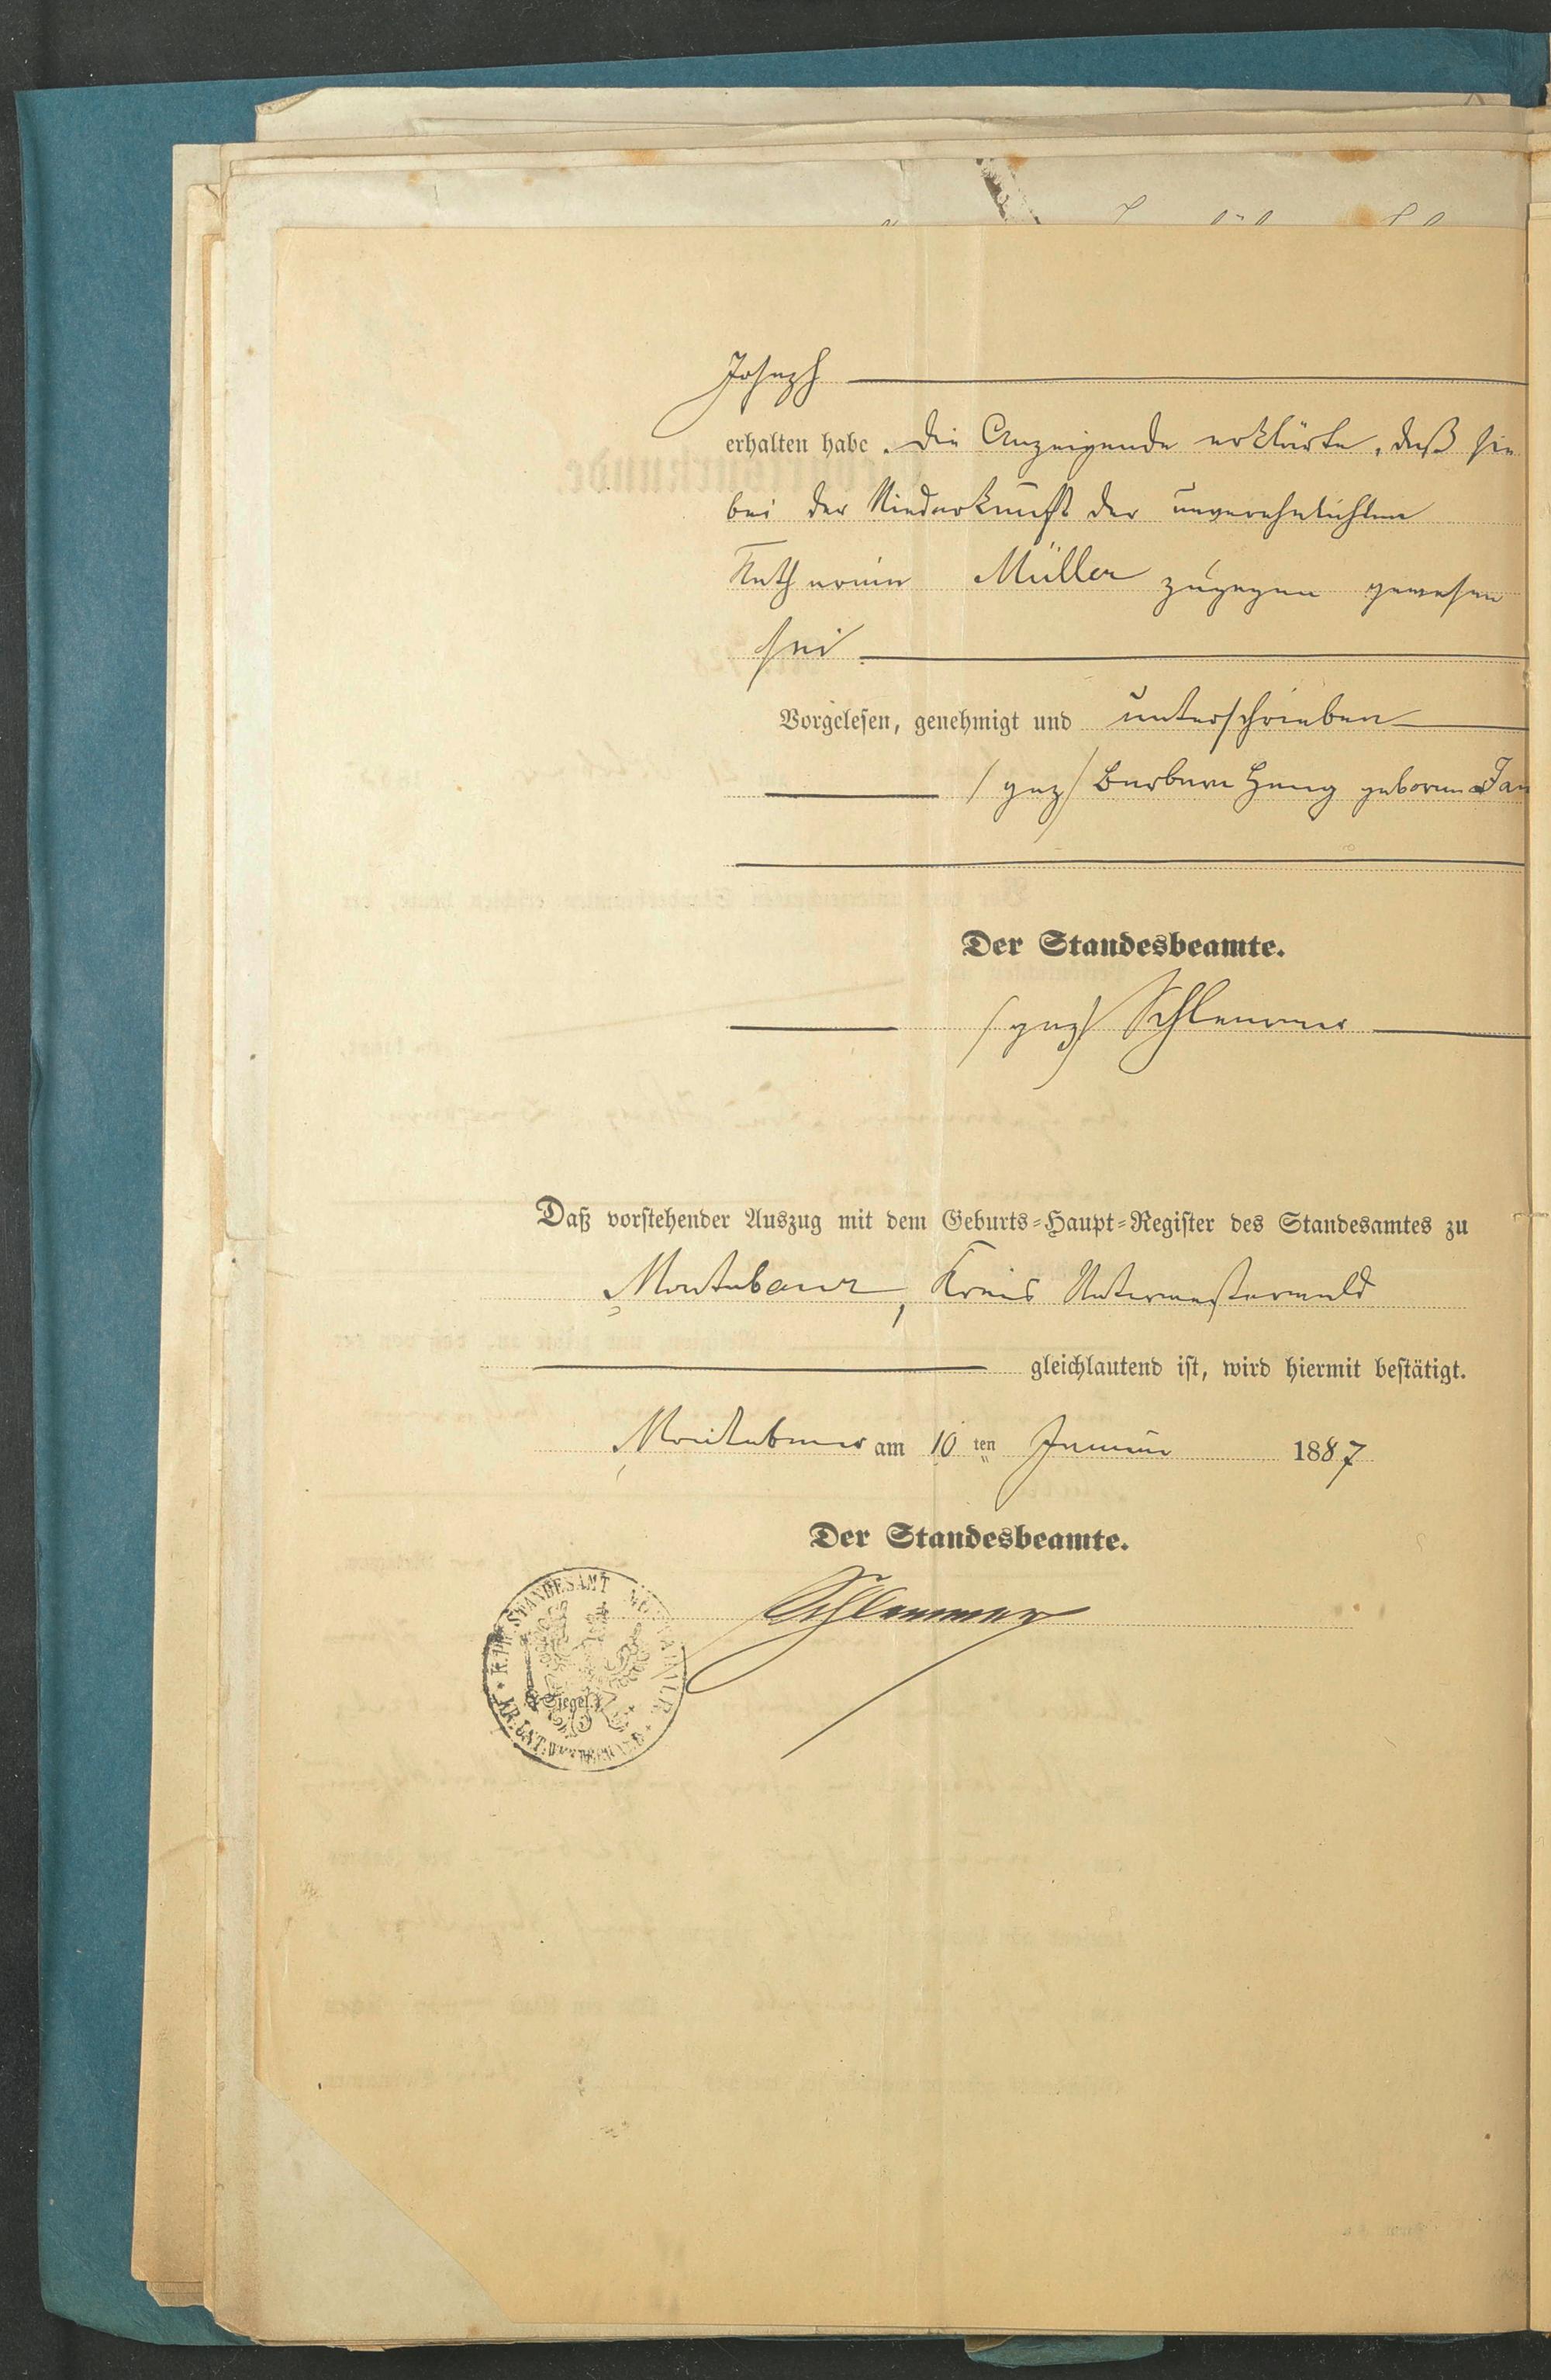 Joseph
erhalten habe. Die Anzeigende erklärte, daß sie
bei der Niederkunft der unverehelichten
Katharina Müller zugegen gewesen
sei
Vorgelesen, genehmigt und unterschrieben
(gez) Barbara Haug geborene
Der Standesbeamte.
(gez) Schlemmer
Daß vorstehender Auszug mit dem Geburts-Haupt-Register des Standesamtes zu
Montabaur, Kreis Unterwesterwald
gleichlautend ist, wird hiermit bestätigt.
Montabaur am 10 ten Januar 1887
Der Standesbeamte.
Schlemmer
K. PR. STANDESAMT MONTABAUR
(Siegel.)
KR. UNT. WESTERWALD